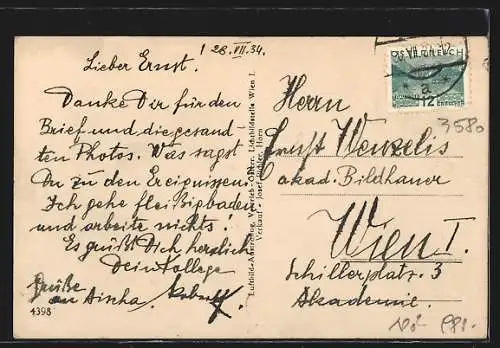 ! 28.VII.34.
Lieber Ernst.
Danke Dir für den
Brief und die gesand-
ten Photos. Was sagst
Du zu den Ereignissen.
Ich gehe fleißig baden
und arbeite nichts!
Es grüßt Dich herzlich
Dein Kollege
Grüße
an Aischa.
4398
Luftbild-Aufnahme, Vertrieb Österr. Lichtbildstelle Wien I.
Verkauf: Josef Pichler, Horn
ÖSTERREICH
12 GROSCHEN
a
3580
Herrn
Ernst Wenzelis
akad. Bildhauer
Wien I.
Schillerplatz. 3
Akademie.